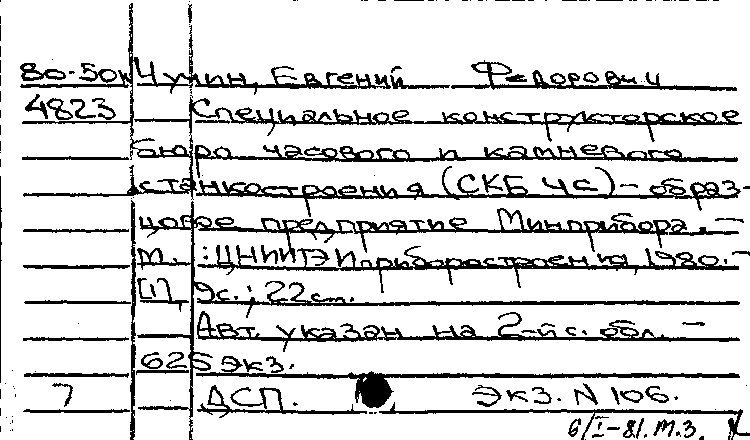 80-50к Чумин, Евгений Федорович
4823 Специальное конструкторское
бюро часового и камневого
станкостроения (СКБ ЧС) – образ-
цовое предприятие Минприбора. –
М. : ЦНИИТЭИприборостроения, 1980. –
[1], 9с.; 22см.
Авт. указан на 2-й с. обл. –
625 экз.
7 ДСП. Экз. N 106.
6/I-81. М.З.